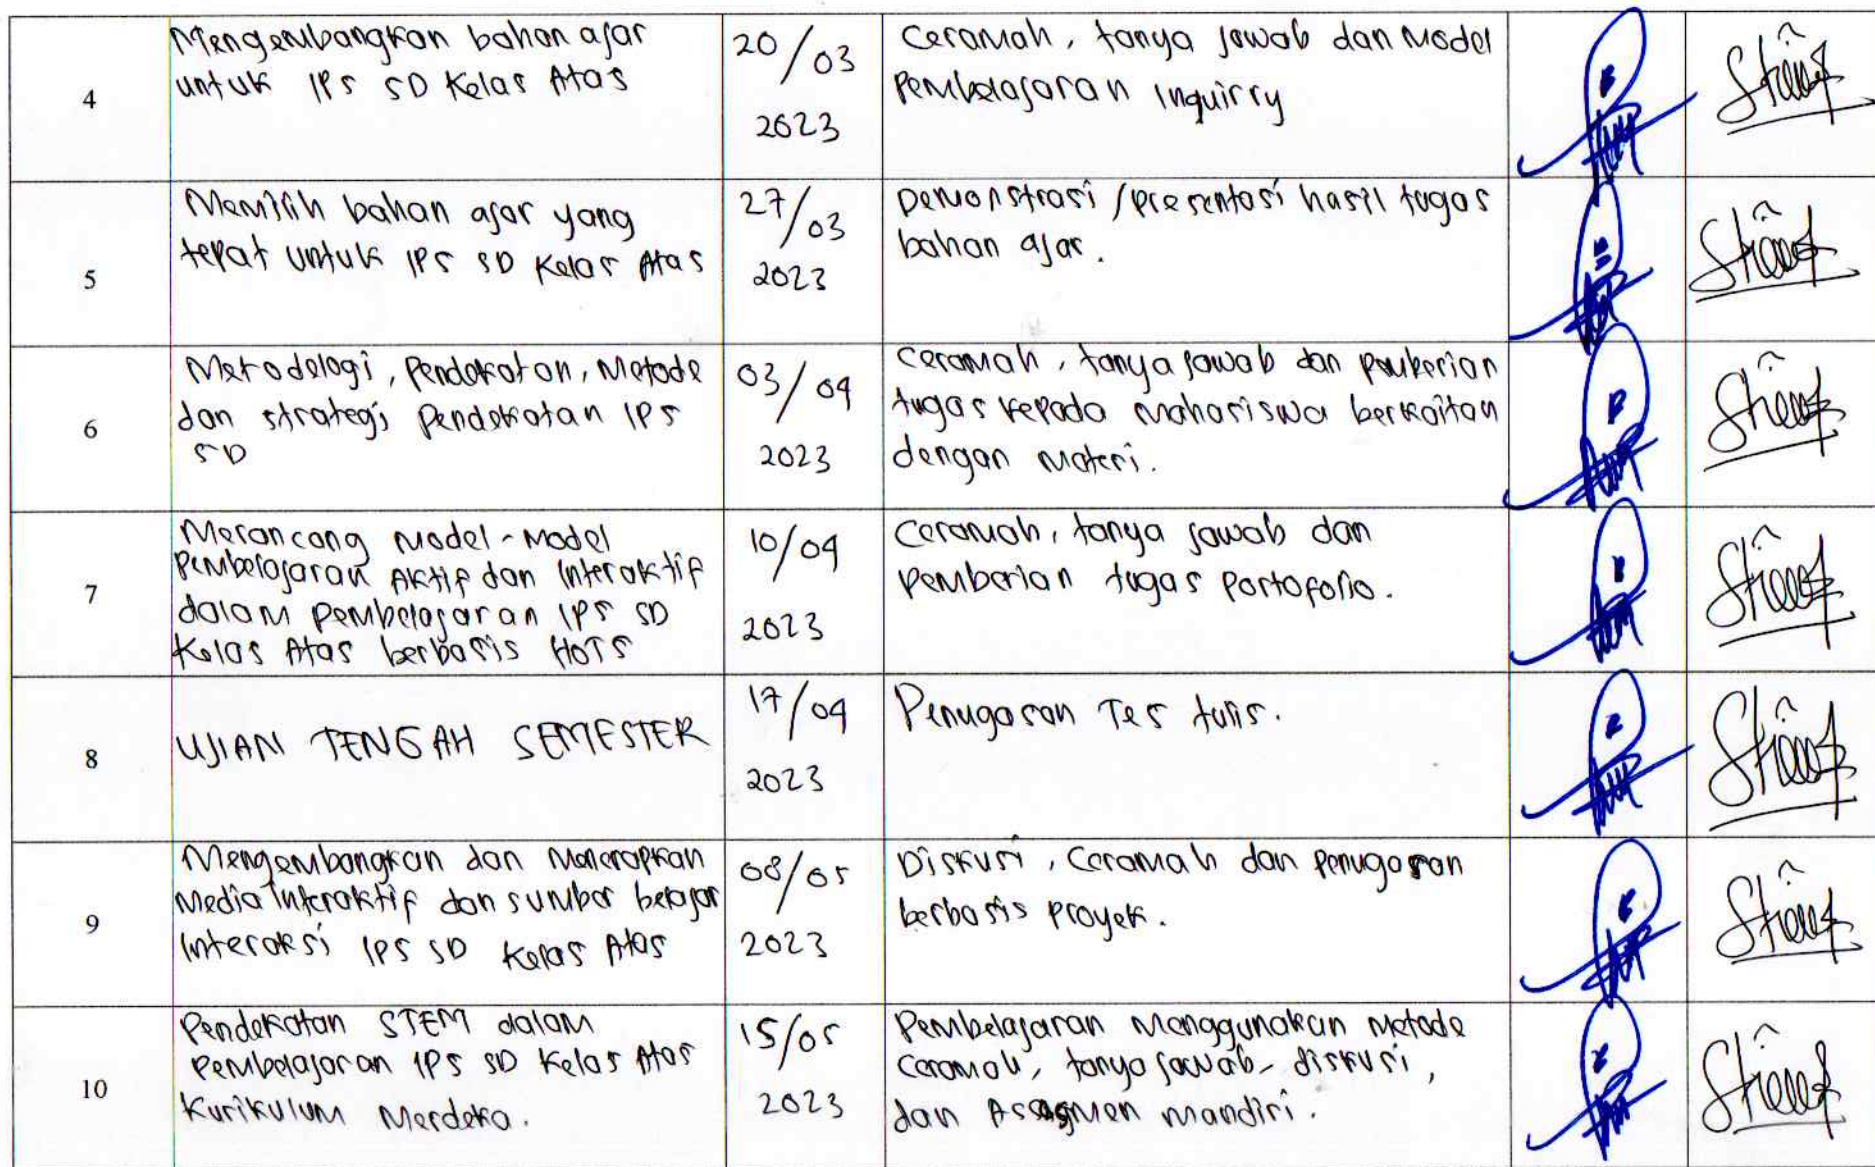 4
Mengembangkan bahan ajar
untuk IPS SD Kelas Atas
20/03
2023
Ceramah, tanya jawab dan Model
Pembelajaran Inquirry
5
Memilih bahan ajar yang
tepat untuk IPS SD Kelas Atas
27/03
2023
Demonstrasi /presentasi hasil tugas
bahan ajar.
6
Metodelogi, Pendekatan, Metode
dan strategi Pendekatan IPS
SD
03/04
2023
Ceramah, tanya jawab dan pemberian
tugas kepada Mahasiswa berkaitan
dengan materi.
7
Merancang Model-Model
Pembelajaran Aktif dan Interaktif
dalam pembelajaran IPS SD
Kelas Atas berbasis HOTS
10/04
2023
Ceramah, tanya jawab dan
pemberian tugas portofolio.
8
UJIAN TENGAH SEMESTER
17/04
2023
Penugasan Tes tulis.
9
Mengembangkan dan Menerapkan
Media Interaktif dan sumber belajar
Interaksi IPS SD Kelas Atas
08/05
2023
Diskusi, Ceramah dan penugasan
berbasis proyek.
10
Pendekatan STEM dalam
Pembelajaran IPS SD Kelas Atas
Kurikulum Merdeka.
15/05
2023
Pembelajaran Menggunakan Metode
Ceramah, tanya jawab, diskusi,
dan mandiri.